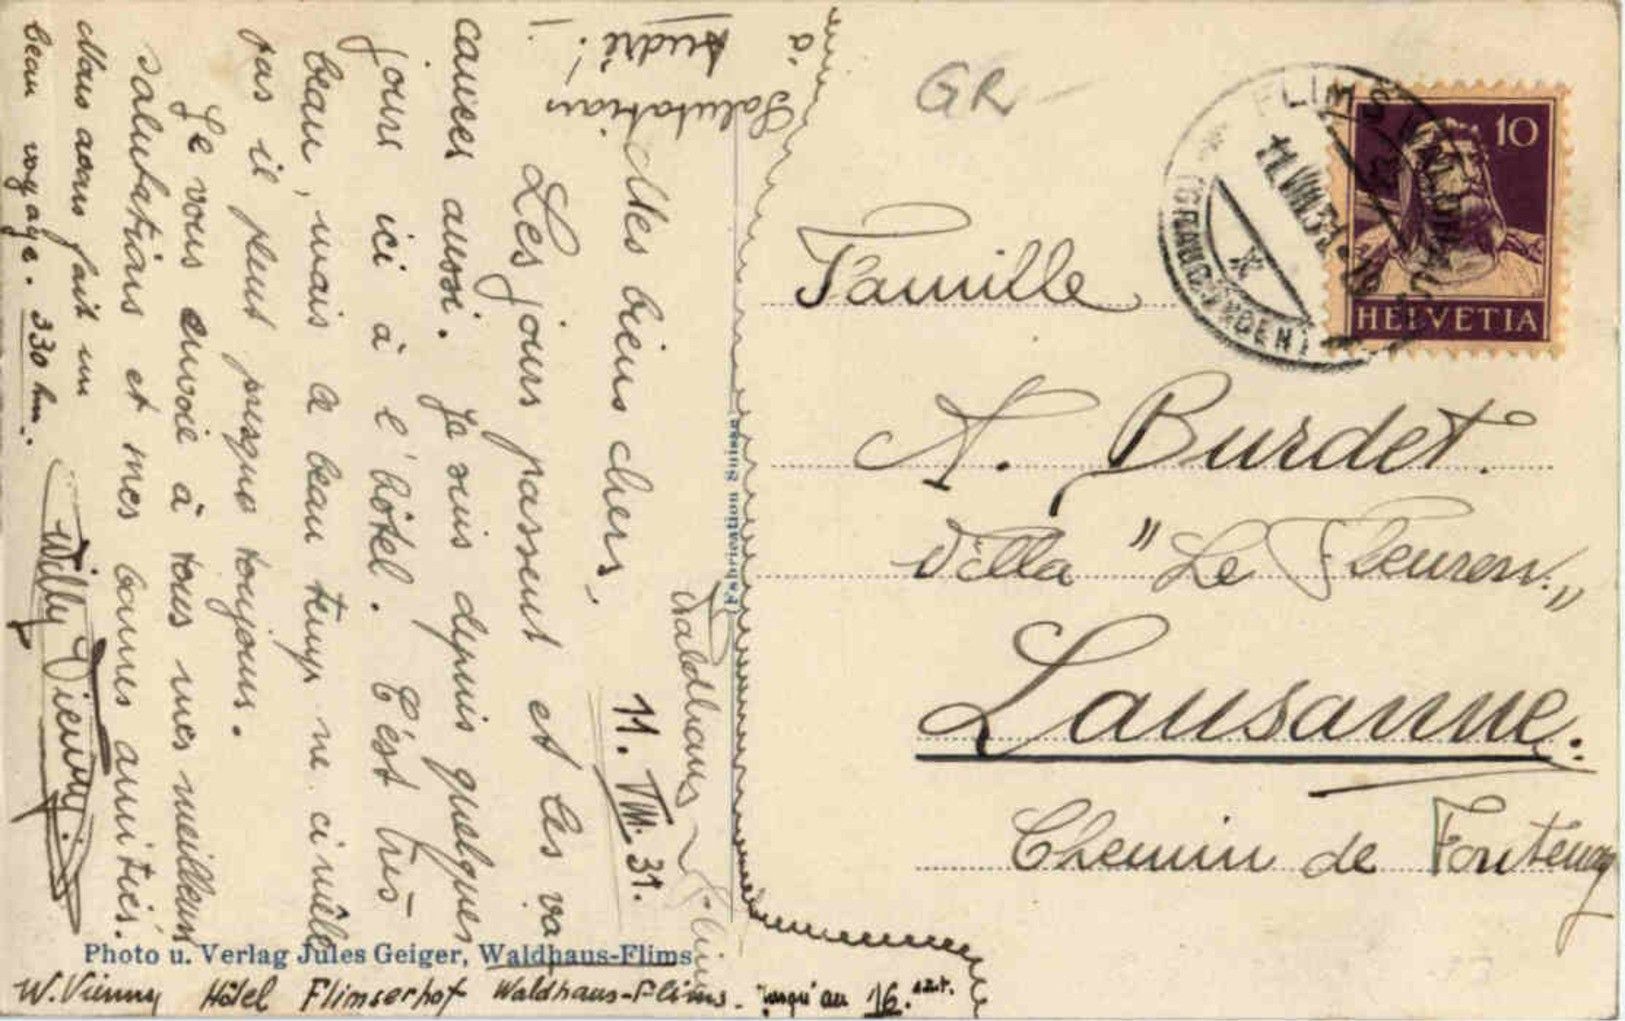 Waldhaus-Flims
11. VIII. 31.
Mes biens chers,
Les jours passent et les va
cances aussi. Je suis depuis quelques
jours ici à l'hôtel. C'est très
beau, mais le beau temps ne
pas il pleut presque toujours.
Je vous envoie à tous mes meilleurs
salutations et mes bonnes amitiés.
Nous avons fait un
beau voyage. 330 km.
Willy Vienny.
Salutations
à
André!
Photo u. Verlag Jules Geiger, Waldhaus-Flims
W. Vienny Hôtel Flimserhof Waldhaus-Flims - jusqu'au 16. août.
Fabrication Suisse
GR
FLIMS WALDHAUS
11.VIII.31
(GRAUBÜNDEN)
10
HELVETIA
Famille
A. Burdet.
Villa "Le Fleuron."
Lausanne.
Chemin de Fontenay